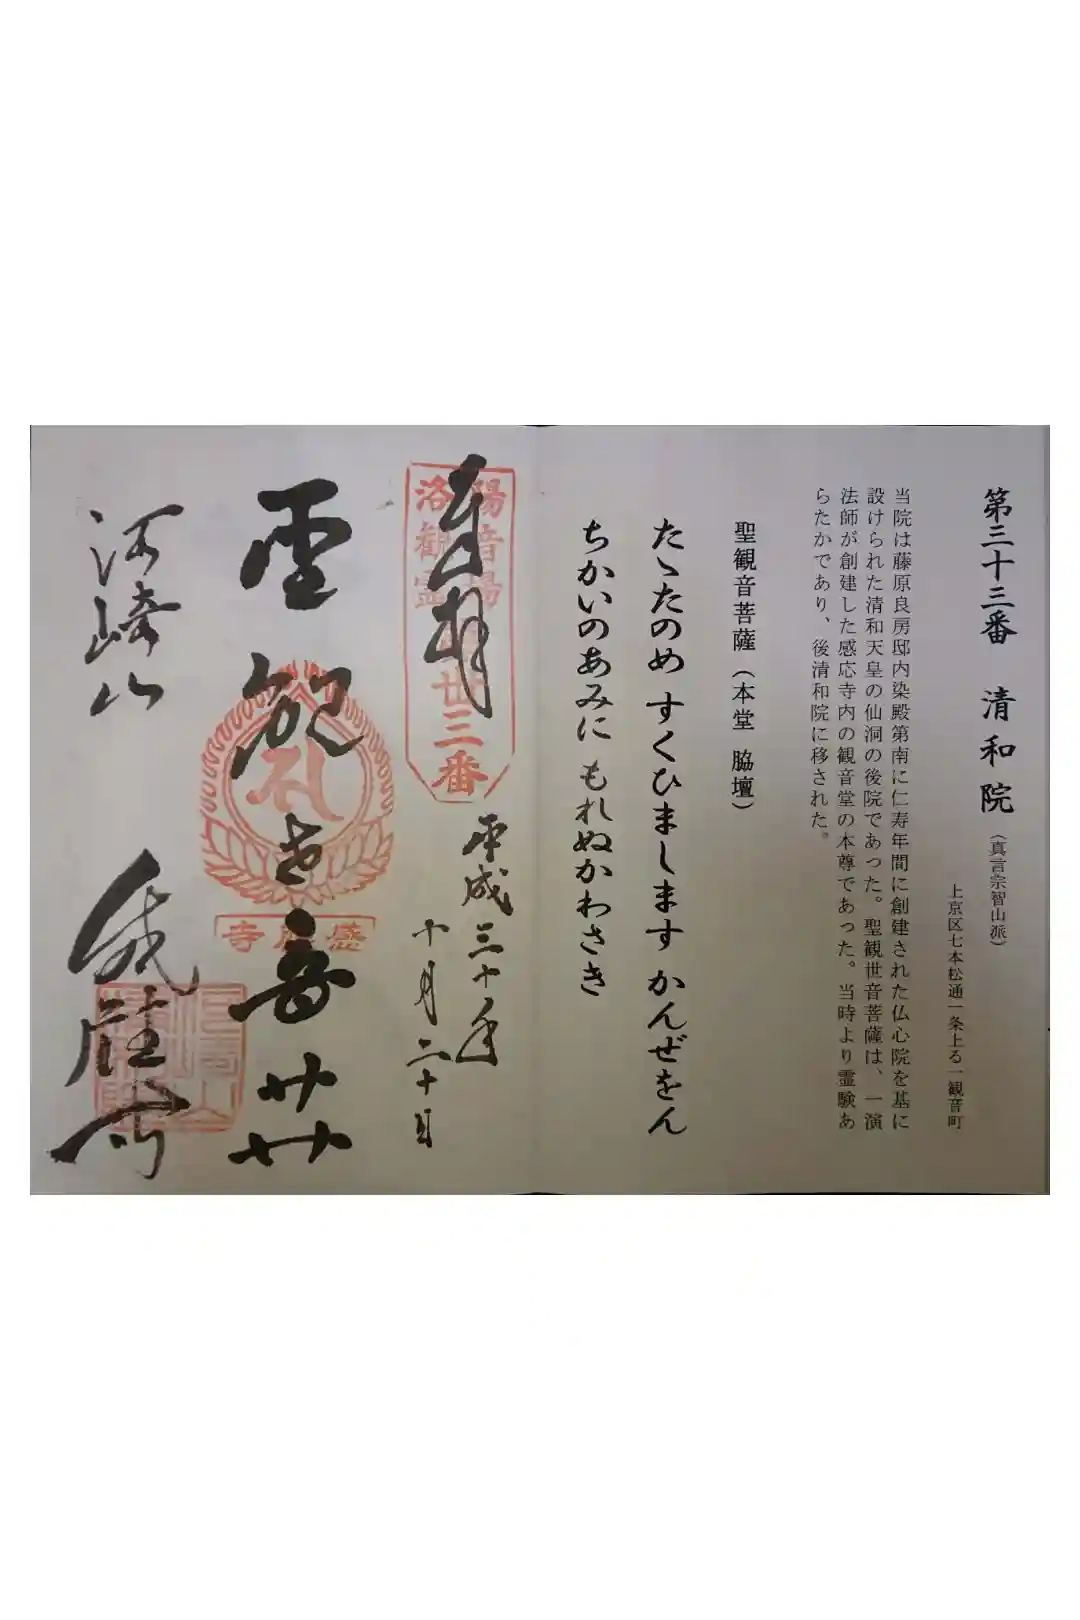 第三十三番　清和院
（真言宗智山派）
上京区七本松通一条上る一観音町
当院は藤原良房邸内染殿第南に仁寿年間に創建された仏心院を基に
設けられた清和天皇の仙洞の後院であった。聖観世音菩薩は、一演
法師が創建した感応寺内の観音堂の本尊であった。当時より霊験あ
らたかであり、後清和院に移された。
聖観音菩薩（本堂 脇壇）
たゝたのめ すくひまします かんぜをん
ちかいのあみに もれぬかわさき
奉拝
洛陽
観音
霊場
廿三番
平成三十年
十月二十日
聖観世音菩薩
感應寺
河崎山